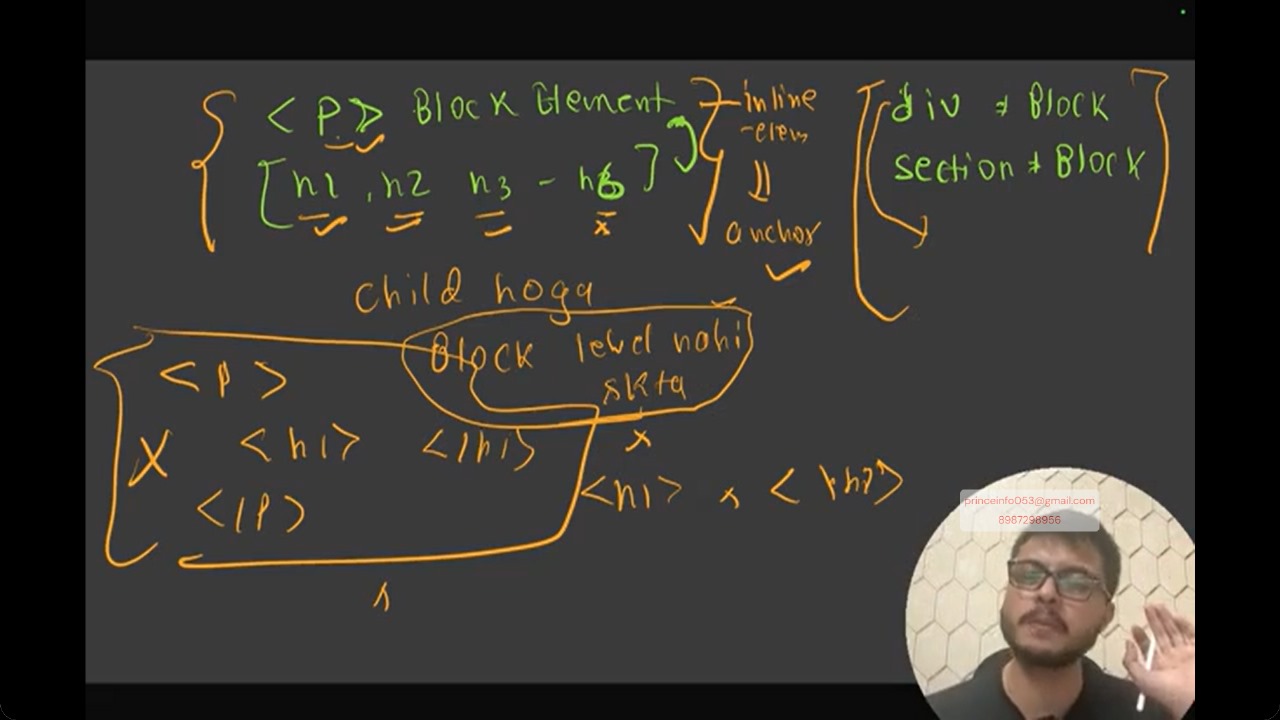 <p> Block Element
[h1, h2 h3 - h6]
inline
-elem
anchor
div * Block
section * Block
child hoga
Block level nahi
skta
<p>
x <h1> </h1>
</p>
x
<h1> x
x
princeinfo053@gmail.com
8987298956